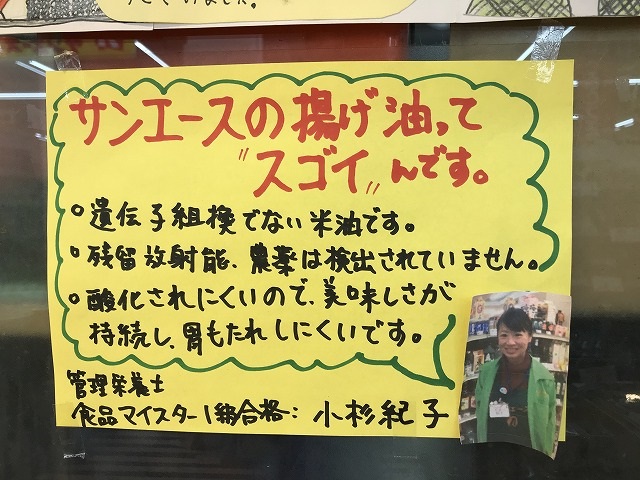 サンエースの揚げ油って
"スゴイ"んです。
○遺伝子組換でない米油です。
○残留放射能、農薬は検出されていません。
○酸化されにくいので、美味しさが
持続し、胃もたれしにくいです。
管理栄養士
食品マイスター1級合格: 小杉紀子